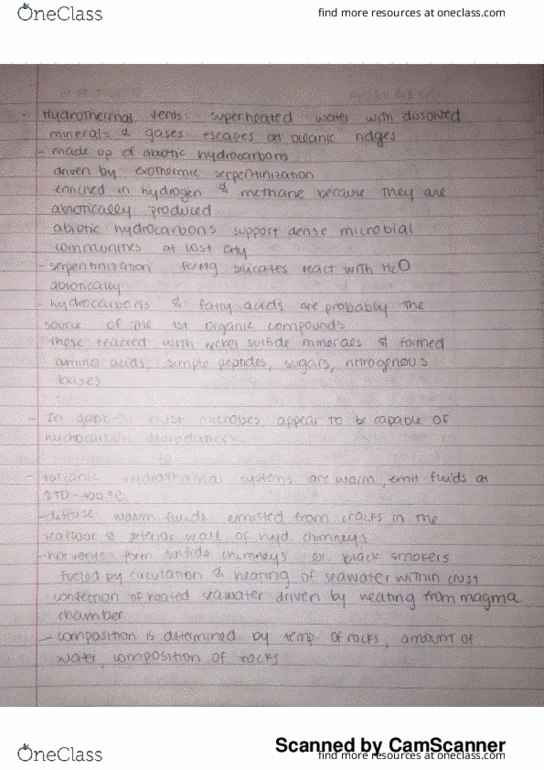 OneClass
find more resources at oneclass.com
- Hydrothermal vents: superheated water with dissolved
minerals & gases escapes at oceanic ridges
- made up of abiotic hydrocarbons
driven by exothermic serpentinization
enriched in hydrogen & methane because they are
abiotically produced
abiotic hydrocarbons support dense microbial
communities at Lost City
- serpentinization Fe/Mg silicates react with H2O
abiotically
- hydrocarbons & fatty acids are probably the
source of the 1st organic compounds
these reacted with nickel sulfide minerals & formed
amino acids, simple peptides, sugars, nitrogenous
bases
- In crust microbes appear to be capable of
hydrocarbon degradation
- volcanic hydrothermal systems are warm, emit fluids at
270-400°C
- diffuse warm fluids emitted from cracks in the
seafloor & exterior wall of hyd. chimneys
- hot vents form sulfide chimneys ex. black smokers
fueled by circulation & heating of seawater within crust
- convection of heated seawater driven by heating from magma
chamber
- composition is determined by temp of rocks, amount of
water, composition of rocks
Scanned by CamScanner
OneClass
find more resources at oneclass.com